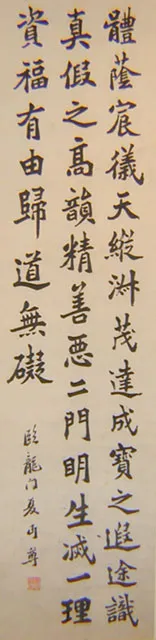 體蔭宸儀天縱淋茂達成寶之遐途識
真假之高韻精善惡二門明生滅一理
資福有由歸道無礙
臨龍门夏丏尊